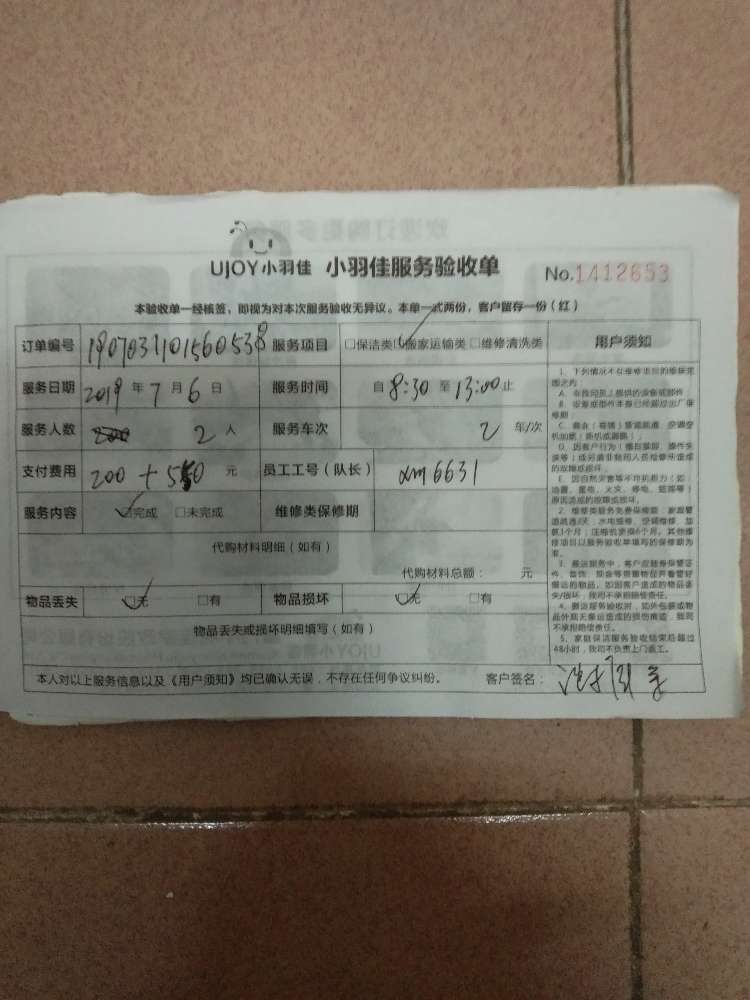 UJOY小羽佳 小羽佳服务验收单 No.1412653
本验收单一经核签，即视为对本次服务验收无异议。本单一式两份，客户留存一份（红）
订单编号 190703110156053 服务项目 □保洁类 ☑搬家运输类 □维修清洗类 用户须知
服务日期 2019 年 7 月 6 日 服务时间 自 8:30 至 13:00 止
服务人数 2 人 服务车次 2 车/次
支付费用 200 + 550 元 员工工号（队长） xm6631
服务内容 ☑完成 □未完成 维修类保修期
代购材料明细（如有）
代购材料总额： 元
物品丢失 ☑无 □有 物品损坏 ☑无 □有
物品丢失或损坏明细填写（如有）
本人对以上服务信息以及《用户须知》均已确认无误，不存在任何争议纠纷。 客户签名：
1、下列情况不在维修项目的维保范
围之内
A、非我司员工提供的设备或部件
B、设备或部件本身已经超过出厂保
修期；
E、因自然灾害等不可抗拒力（如：
地震、雷电、火灾、停电、低压等）
原因造成的故障或损坏。
修项目以服务验收单填写的保修期为
准。
3、搬运服务中，客户应随身保管证
件、首饰、现金等贵重物品并看管好
搬运的物品，如因客户造成的物品丢
失/损坏，我司不承担赔偿责任。
4、搬运服务验收时，如外包装或物
品外观无搬运造成的损伤痕迹，我司
不承担赔偿责任。
5、家庭保洁服务验收结束后超过
48小时，我司不负责上门返工。